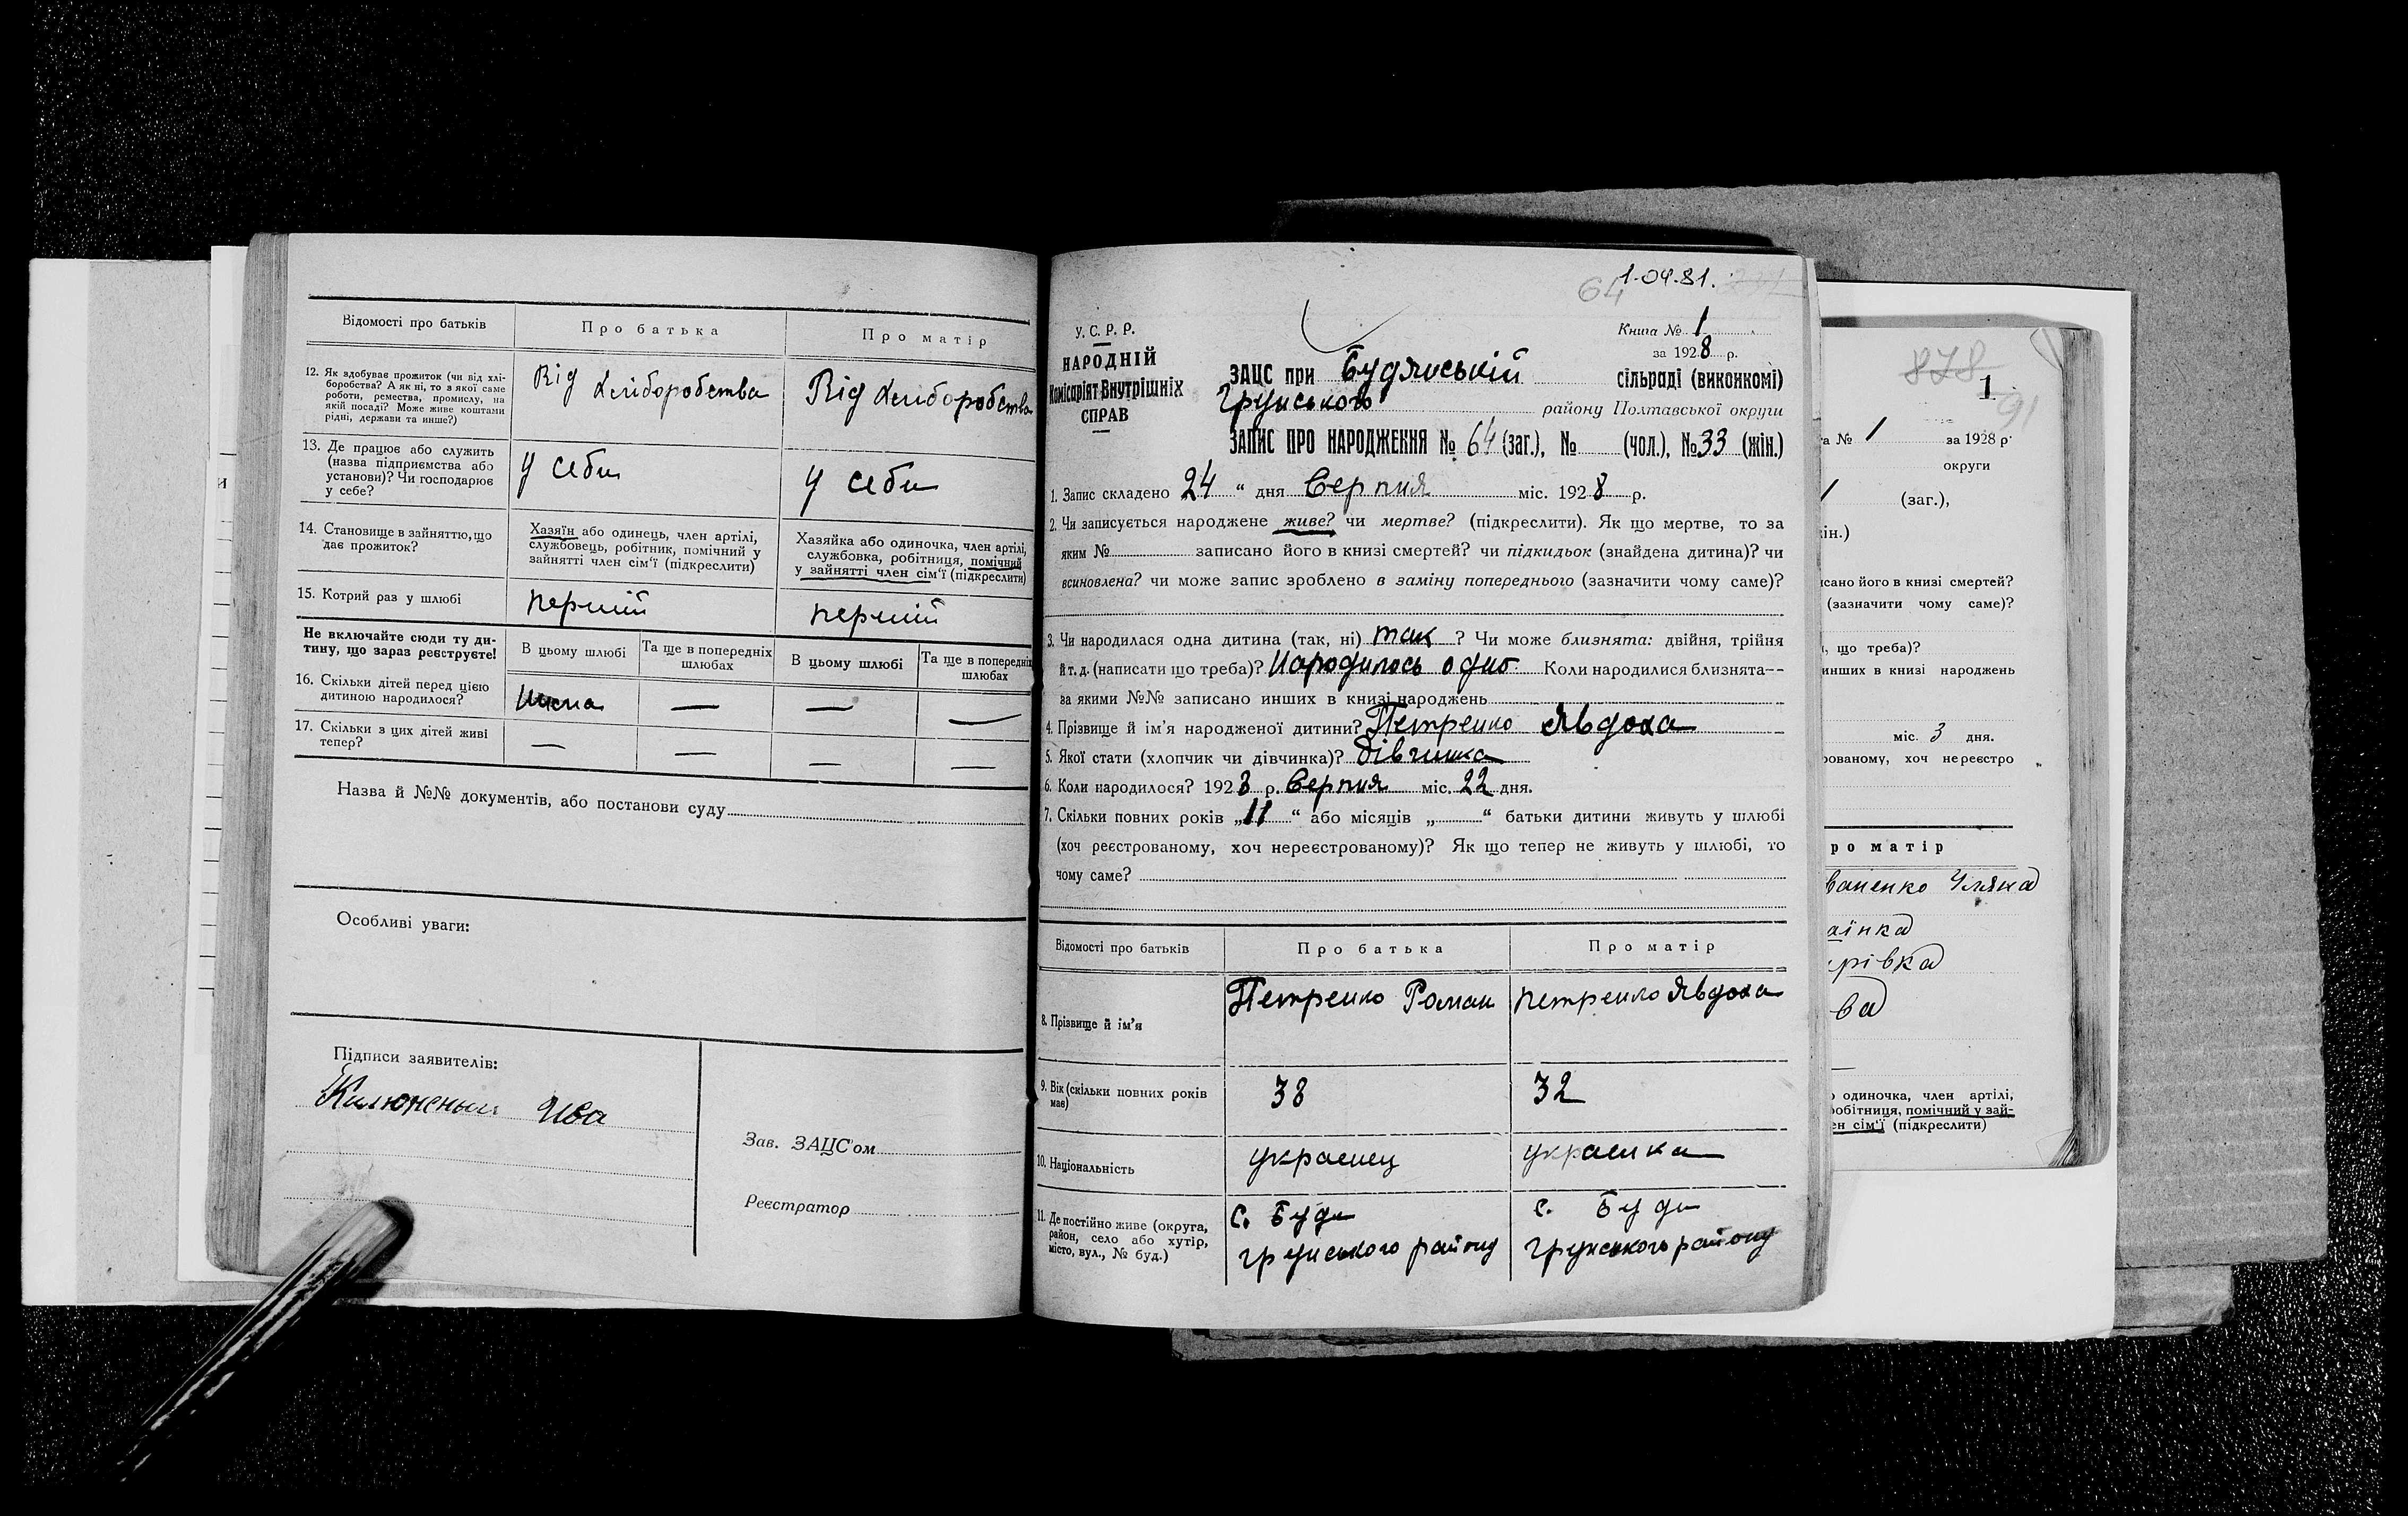 Відомості про батьків
Про батька
Про матір
12. Як здобуває прожиток (чи від хлі-
боробства? А як ні, то з якої саме
роботи, ремества, промислу, на
якій посаді? Може живе коштами
рідні, держави та инше?)
Від хліборобства
Від хліборобства
13. Де працює або служить
(назва підприємства або
установи)? Чи господарює
у себе?
у себи
у себи
14. Становище в зайняттю, що
дає прожиток?
Хазяїн або одинець, член артілі,
службовець, робітник, помічний у
зайнятті член сім'ї (підкреслити)
Хазяйка або одиночка, член артілі,
службовка, робітниця, помічний
у зайнятті член сім'ї (підкреслити)
15. Котрий раз у шлюбі
перший
перший
Не включайте сюди ту ди-
тину, що зараз реєструєте!
В цьому шлюбі
Та ще в попередніх
шлюбах
В цьому шлюбі
Та ще в попередніх
шлюбах
16. Скільки дітей перед цією
дитиною народилося?
— — —
17. Скільки з цих дітей живі
тепер?
— — — —
Назва й №№ документів, або постанови суду
Особливі уваги:
Підписи заявителів:
Зав. ЗАЦС'ом
Реєстратор
64
1-04.81.
У. С. Р. Р.
НАРОДНІЙ
Комісаріят Внутрішніх
СПРАВ
Книга № 1
за 1928 р.
ЗАЦС при Будянській сільраді (виконкомі)
Грунського району Полтавської округи
ЗАПИС ПРО НАРОДЖЕННЯ № 64 (заг.), № (чол.), № 33 (жін.)
1. Запис складено 24 “ дня Серпня міс. 1928 р.
2. Чи записується народжене живе? чи мертве? (підкреслити). Як що мертве, то за
яким № записано його в книзі смертей? чи підкидьок (знайдена дитина)? чи
всиновлена? чи може запис зроблено в заміну попереднього (зазначити чому саме)?
3. Чи народилася одна дитина (так, ні) так ? Чи може близнята: двійня, трійня
й т. д. (написати що треба)? Народилось одно Коли народилися близнята—
за якими №№ записано инших в книзі народжень
4. Прізвище й ім'я народженої дитини? Петренко Явдоха
5. Якої стати (хлопчик чи дівчинка)? дівчинка
6. Коли народилося? 1928 р. Серпня міс. 22 дня.
7. Скільки повних років „11“ або місяців „ “ батьки дитини живуть у шлюбі
(хоч реєстрованому, хоч нереєстрованому)? Як що тепер не живуть у шлюбі, то
чому саме?
Відомості про батьків
Про батька
Про матір
8. Прізвище й ім'я
Петренко Роман
петренко Явдоха
9. Вік (скільки повних років
має)
38
32
10. Національність
украенец
украенка
11. Де постійно живе (округа,
район, село або хутір,
місто, вул., № буд.)
с. Буди
грунського району
с. Буди
грунського району
878
1
91
а № 1 за 1928 р.
округи
(заг.),
ін.)
исано його в книзі смертей?
(зазначити чому саме)?
, що треба)?
инших в книзі народжень
міс. 3 дня.
рованому, хоч нереєстро
ро матір
ваненко Уляна
аїнка
рівка
ва
о одиночка, член артілі,
робітниця, помічний у зай-
ен сім'ї (підкреслити)